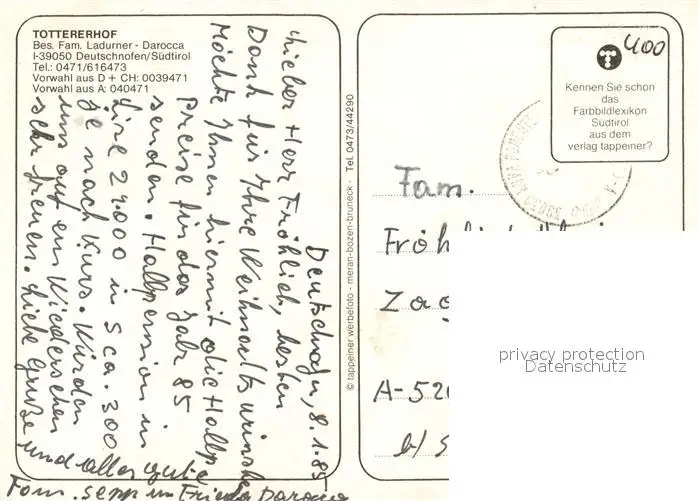 TOTTERERHOF
Bes. Fam. Ladurner - Darocca
I-39050 Deutschnofen/Südtirol
Tel.: 0471/616473
Vorwahl aus D + CH: 0039471
Vorwahl aus A: 040471
Deutschnofen, 8.1.85
Lieber Herr Fröhlich, besten
Dank für Ihre Weihnachtswünsche
Möchte Ihnen hiermit die Halbp
Preise für das Jahr 85
senden. Halbpension in
Lire 27.000 in S ca. 300
je nach Kurs. Würden
uns auf ein Wiedersehen
sehr freuen. Liebe Grüße
und alles gute
Fam. Sepp un Frieda Darocca
© tappeiner werbefoto - meran-bozen-bruneck - Tel. 0473/44290
400
Kennen Sie schon
das
Farbbildlexikon
Südtirol
aus dem
verlag tappeiner?
Fam.
A-52
b/S
privacy protection
Datenschutz